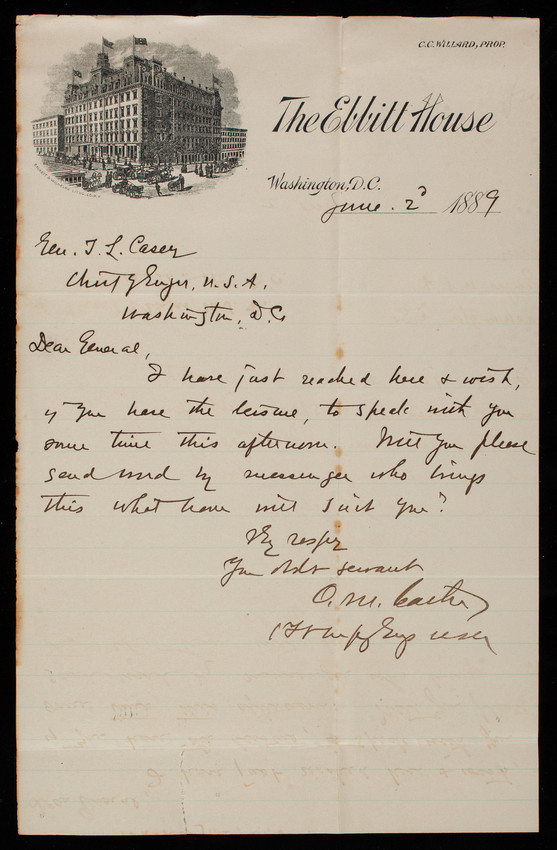 C. C. WILLARD, PROP.
The Ebbitt House
Washington, D.C.
June. 2d 1889
Gen. T. L. Casey
Chief of Engrs, U.S.A.
Washington, D.C.
Dear General,
I have just reached here & wish,
if you have the leisure, to speak with you
some time this afternoon. Will you please
send word by messenger who brings
this what hour will suit you?
Vy respy
Your obdt servant
O. M. Carter
1st Lt Corps Engs USA